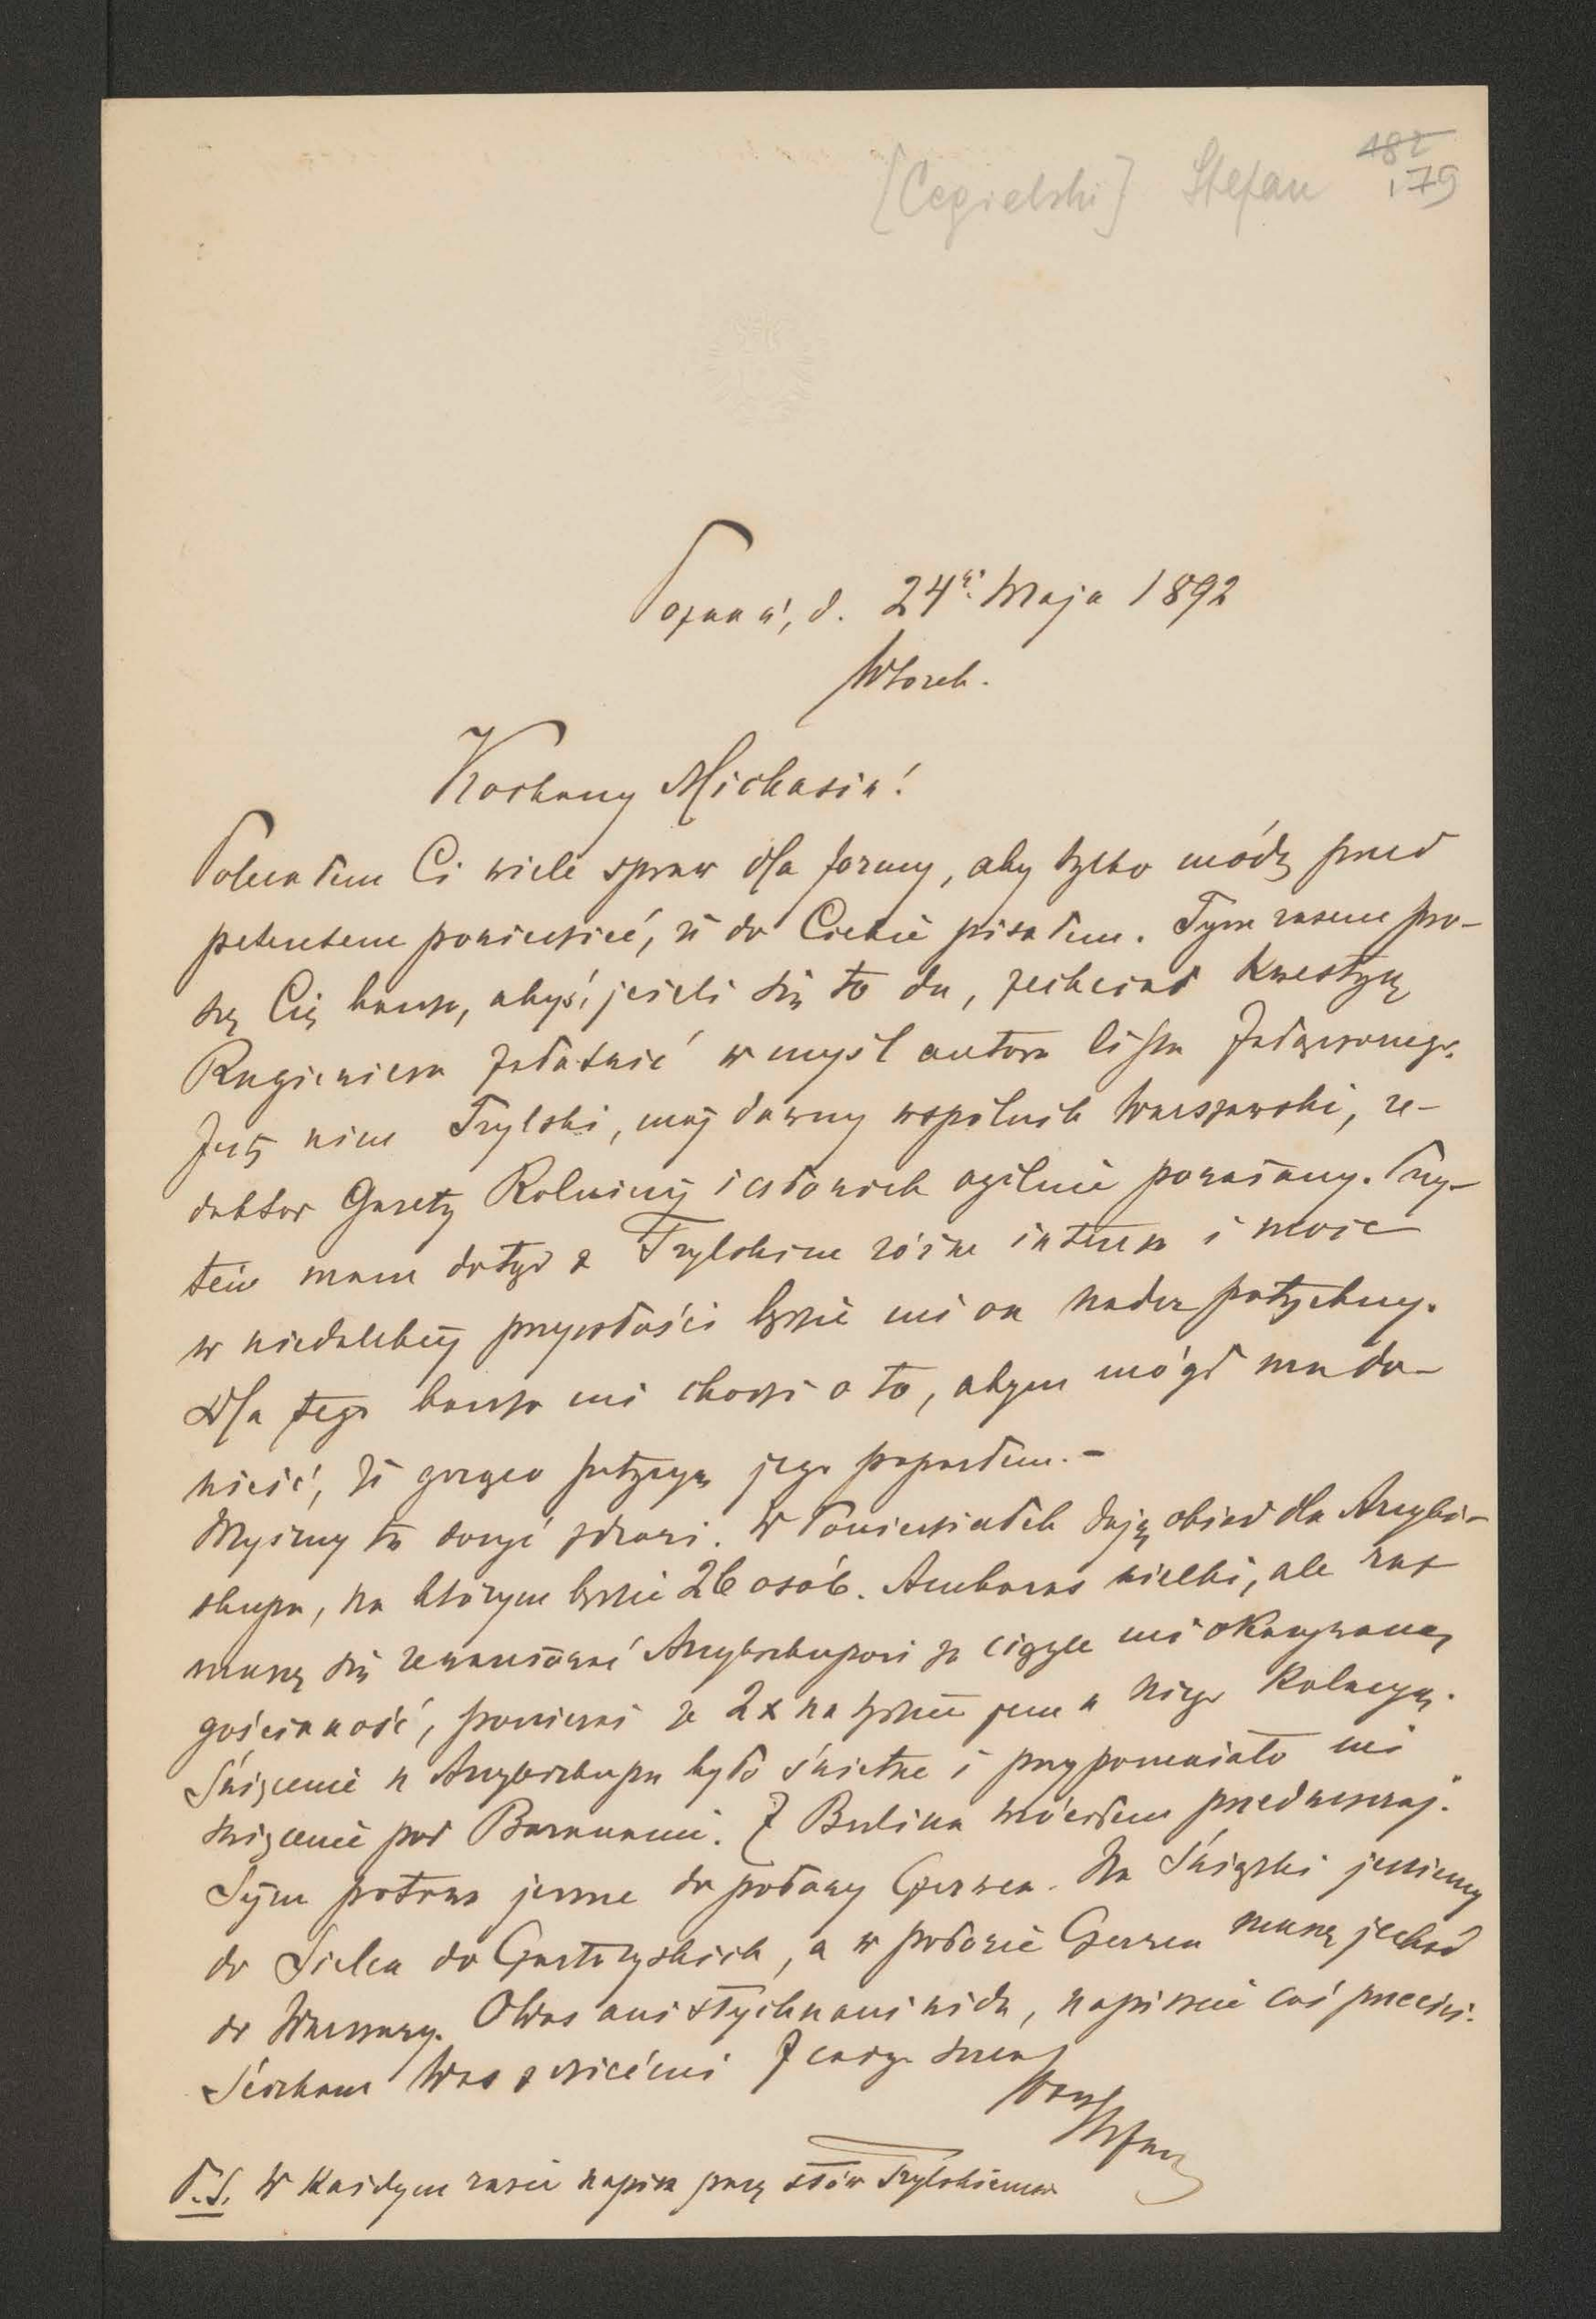 [Cegielski] Stefan 182
179
Poznań, d. 24ẙ Maja 1892
Wtorek.
Kochany Michasiu!
Polecałem Ci wiele spraw dla formy, aby tylko módz przed
petentem powiedzieć, iż do Ciebie pisałem. Tym razem pro-
szę Cię bardzo, abyś, jeżeli się to da, zechciał kwestyę
załatwić w myśl autora listu załączonego.
Jest nim Trylski, mój dawny wspólnik Warszawski, re-
daktor Gazety Rolniczej i człowiek ogólnie poważany. Przy-
tem mam dotąd z Trylskim różne interesa i może
w niedalekiej przyszłości będzie mi on nader potrzebny.
Dla tego bardzo mi chodzi o to, abym mógł mu do-
nieść, iż gorąco jego poparłem. -
Myśmy tu dosyć zdrowi. W Poniedziałek daję obiad dla Arcybi-
skupa, na którym będzie 26 osób. Ambaras wielki, ale raz
muszę się rewanżować Arcybiskupowi za ciągle mi okazywaną
gościnność, ponieważ ze 2x na tydzień jem u niego kolacyą.
Święcenie u Arcybiskupa było świetne i przypominało mi
święcenie pod Baranami. Z Berlina wróciłem przedwczoraj.
Sejm potrwa jeszcze do połowy Czerwca. Na Świątki jedziemy
do Sielca do Czartoryskich, a w połowie Czerwca muszę jechać
do Warszawy. O Was ani słychu ani widu, napiszcie coś przecież.
Ściskam Was z dziećmi z całego serca
Wasz Stefan
P.S. W każdym razie napisz parę słów Trylskiemu